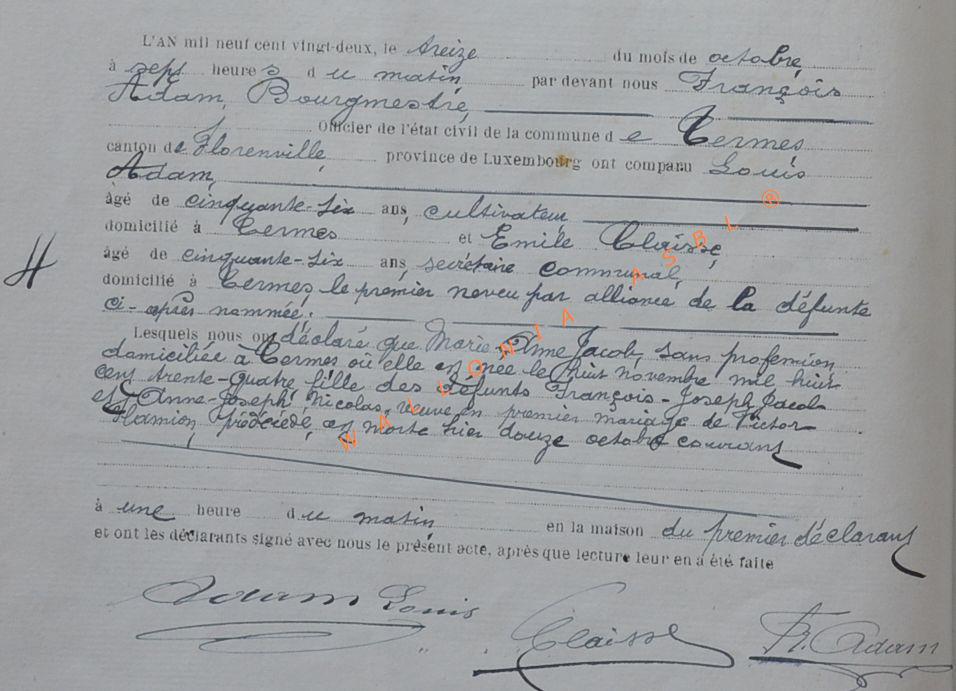 L'AN mil neuf cent vingt-deux, le treize du mois de octobre,
à sept heures du matin, par devant nous François
Adam, Bourgmestre,
Officier de l'état civil de la commune de Termes
canton de Florenville, province de Luxembourg ont comparu Louis
Adam,
âgé de cinquante-six ans, cultivateur,
domicilié à Termes et Emile Claisse,
âgé de cinquante-six ans, secrétaire communal,
domicilié à Termes, le premier neveu par alliance de la défunte
ci-après nommée.
Lesquels nous ont déclaré que Marie-Anne Jacob, sans profession
domiciliée à Termes où elle est née le huit novembre mil huit
cent trente-quatre fille des défunts François-Joseph Jacob
et Anne-Joseph Nicolas, veuve en premier mariage de Victor
Hamion, prédécédé, est morte hier douze octobre courant
à une heure du matin, en la maison du premier déclarant
et ont les déclarants signé avec nous le présent acte, après que lecture leur en a été faite
Adam Louis Claisse Fr. Adam
H
WALLONIA ASBL ®